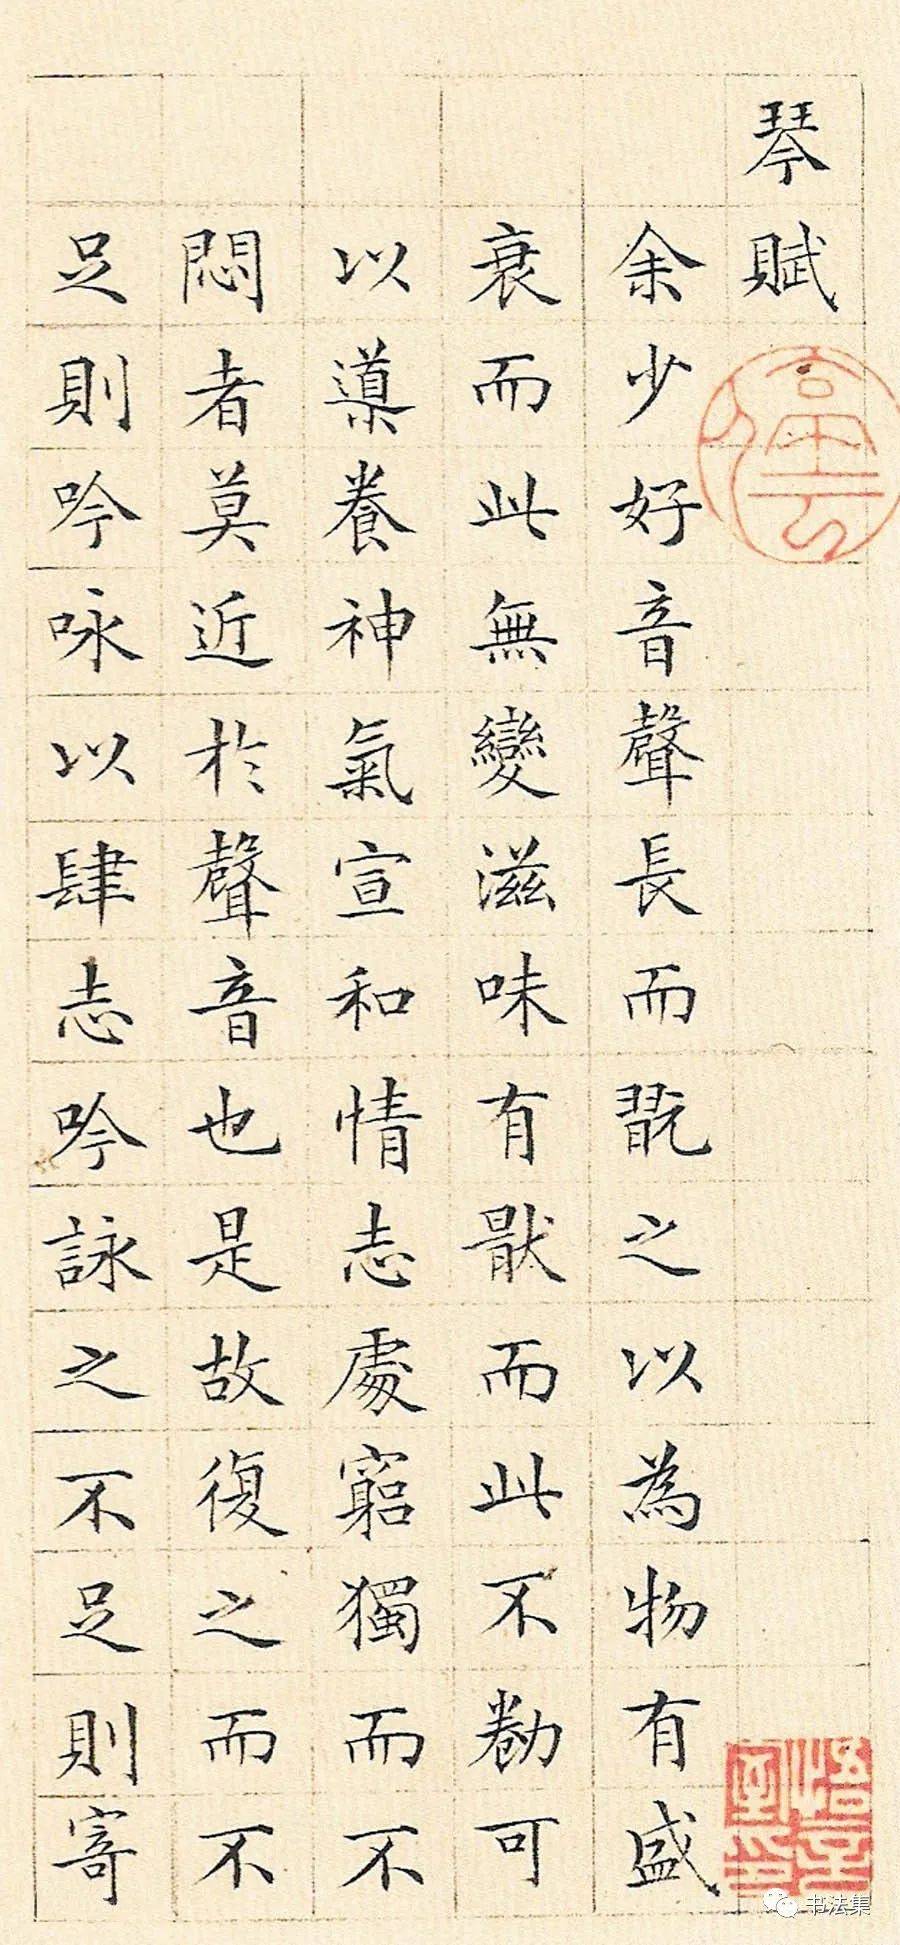 琴賦
余少好音聲長而翫之以為物有盛
衰而此無變滋味有猒而此不勌可
以導養神氣宣和情志處窮獨而不
悶者莫近於聲音也是故復之而不
足則吟咏以肆志吟詠之不足則寄
书法集